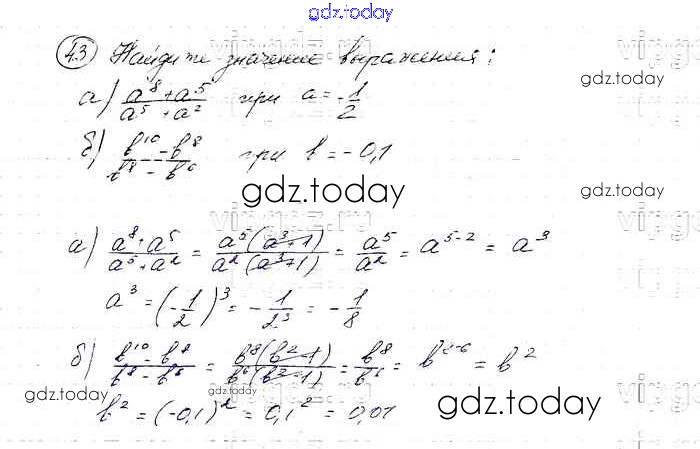 gdz.today
43 Найдите значение выражения:
gdz.today
а) (a⁸ + a⁵)/(a⁵ + a²) при a = -1/2
б) (b¹⁰ - b⁸)/(b⁸ - b⁶) при b = -0,1
gdz.today
gdz.today
а) (a⁸ + a⁵)/(a⁵ + a²) = a⁵(a³+1)/a²(a³+1) = a⁵/a² = a⁵⁻² = a³
a³ = (-1/2)³ = -1/2³ = -1/8
gdz.today
б) (b¹⁰ - b⁸)/(b⁸ - b⁶) = b⁸(b²-1)/b⁶(b²-1) = b⁸/b⁶ = b⁸⁻⁶ = b²
gdz.today
gdz.today
b² = (-0,1)² = 0,1² = 0,01
gdz.today